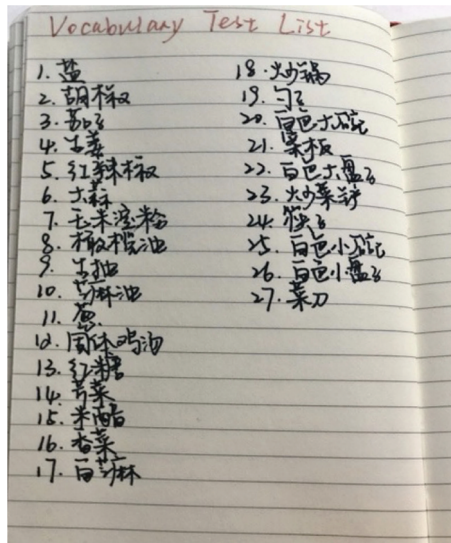 Vocabulary Test List
1. 盐
2. 胡椒
3. 茄子
4. 生姜
5. 红辣椒
6. 大蒜
7. 玉米淀粉
8. 橄榄油
9. 生抽
10. 芝麻油
11. 葱
12. 固体鸡汤
13. 红糖
14. 芹菜
15. 米醋
16. 香菜
17. 白芝麻
18. 炒锅
19. 勺子
20. 白色大碗
21. 菜板
22. 白色大盘子
23. 炒菜铲
24. 筷子
25. 白色小碗
26. 白色小盘子
27. 菜刀